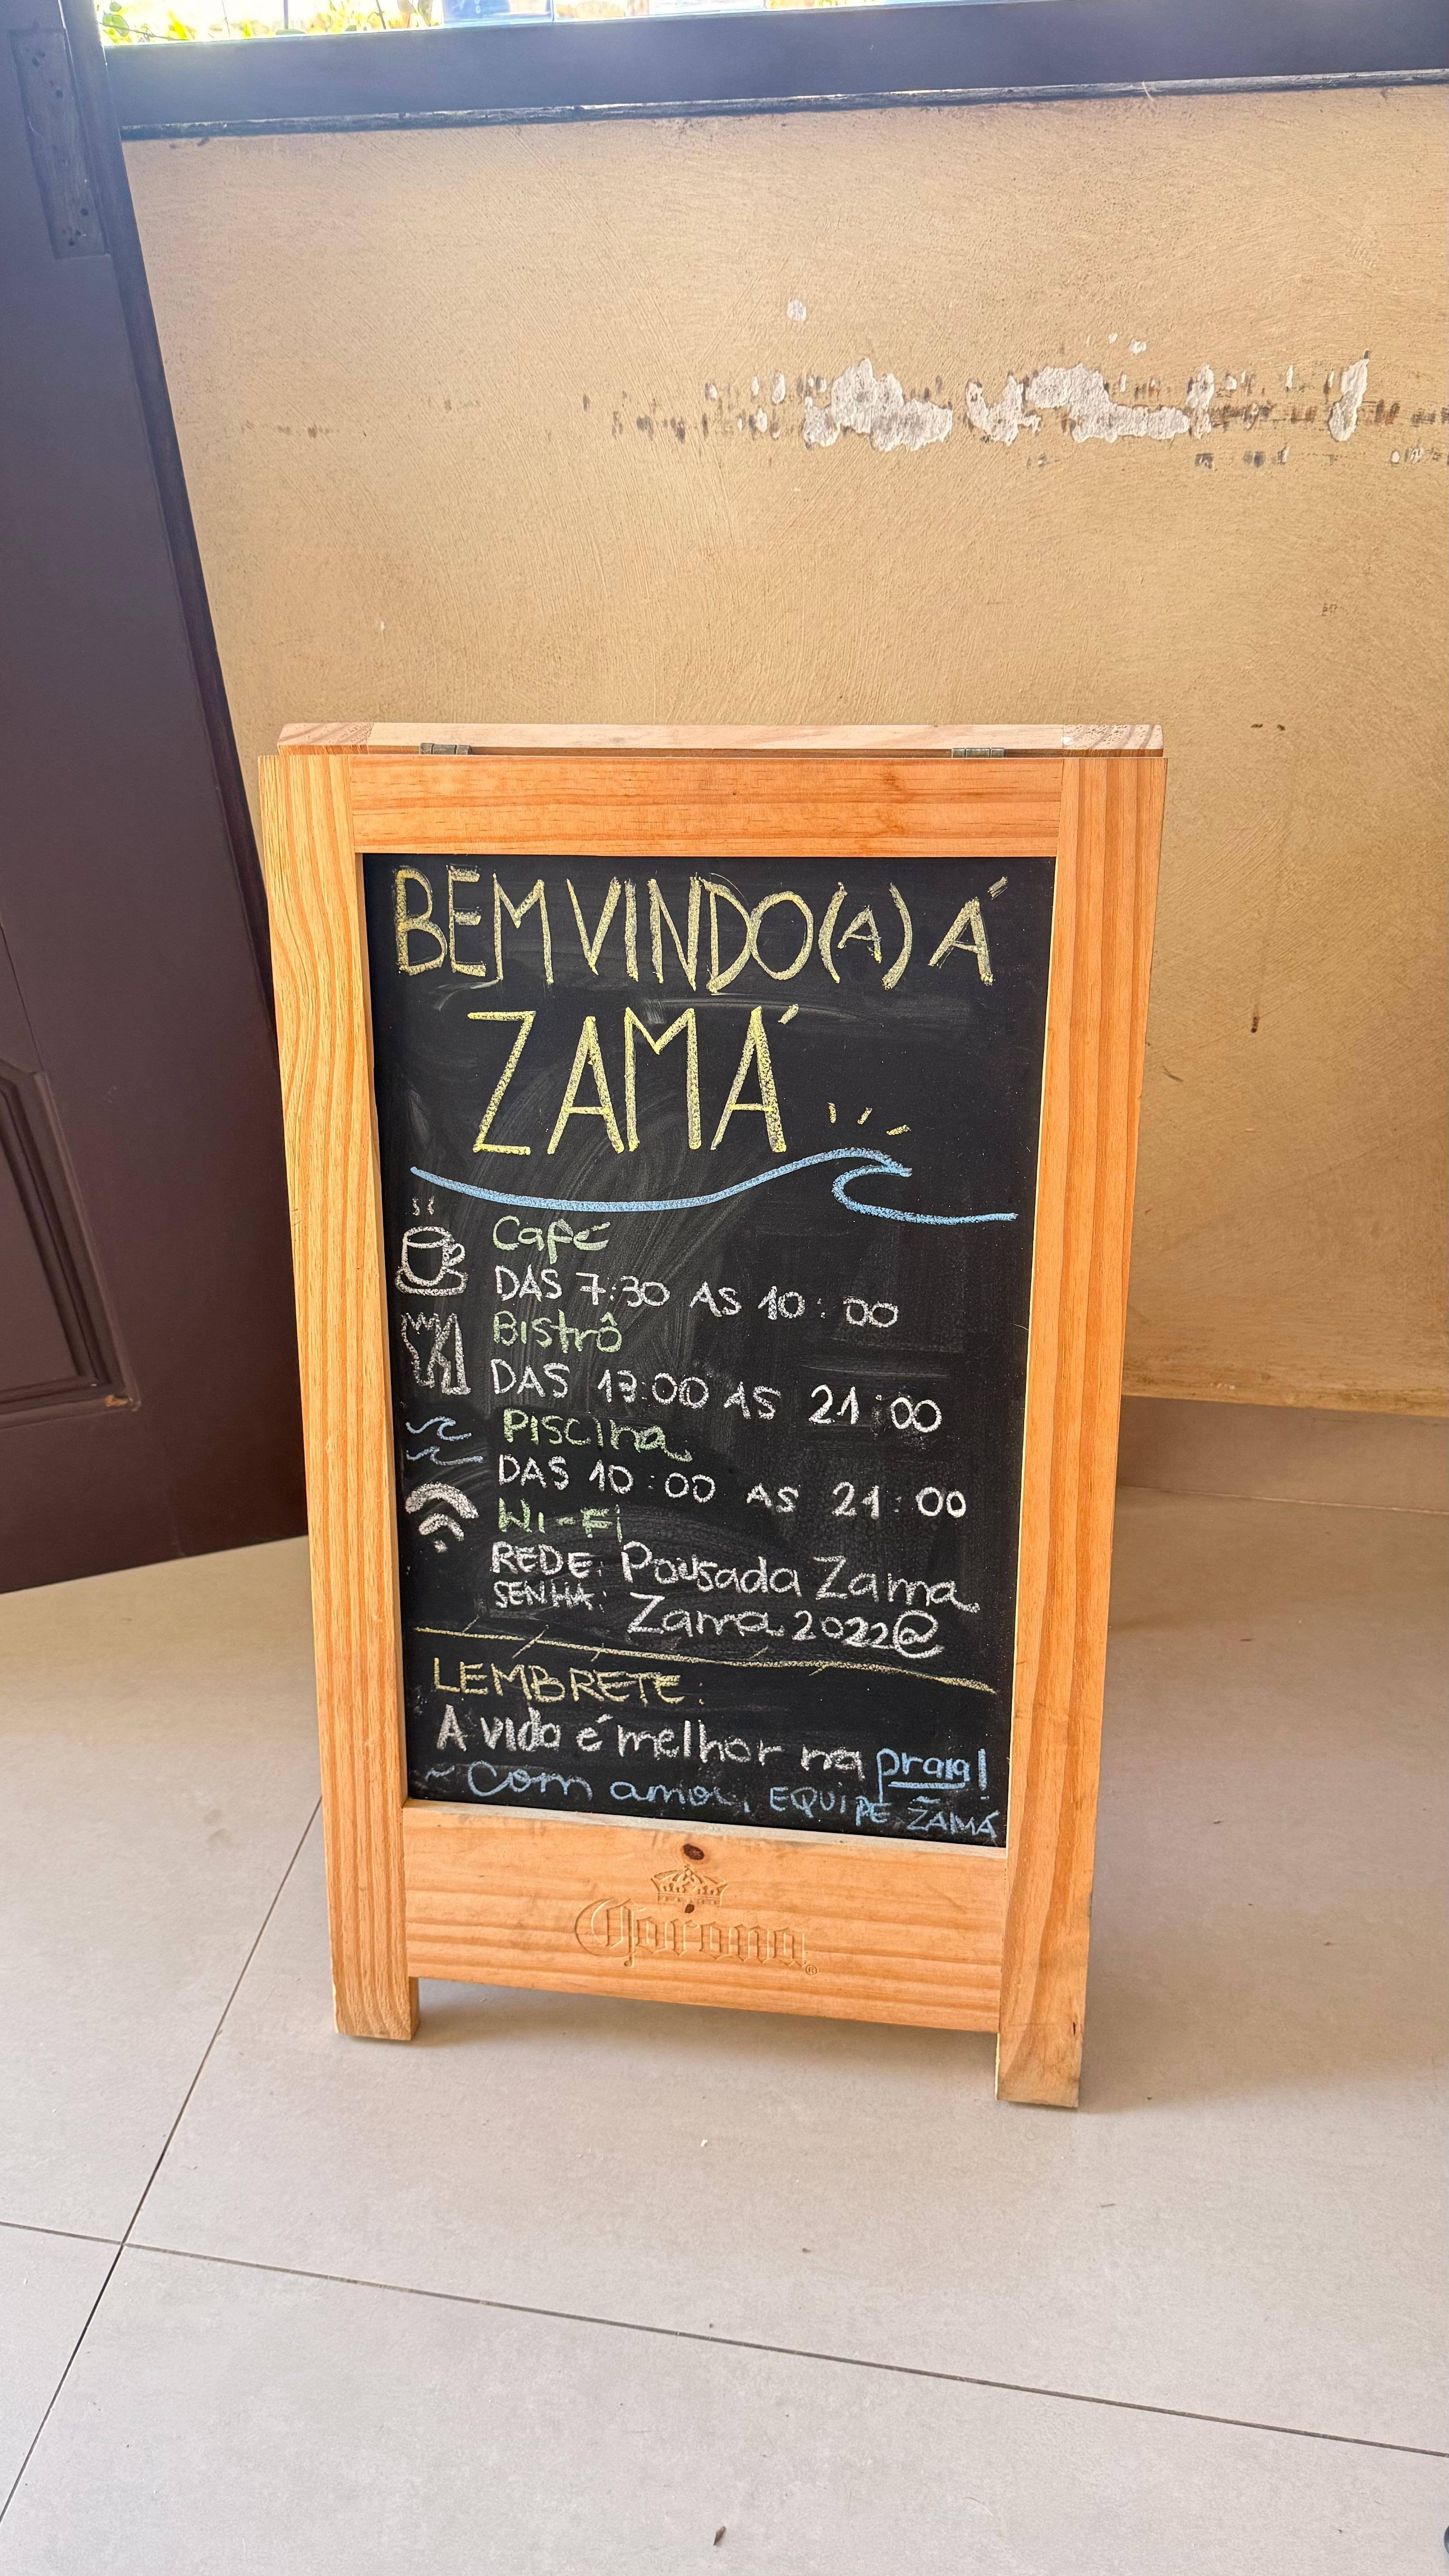 BEM VINDO(A) Á
ZAMÁ
Café
DAS 7:30 AS 10:00
Bistrô
DAS 13:00 AS 21:00
Piscina
DAS 10:00 AS 21:00
Wi-Fi
REDE: Pousada Zama
SENHA: Zama2022@
LEMBRETE:
A vida é melhor na praia!
~ Com amor, EQUIPE ZAMÁ
Corona®